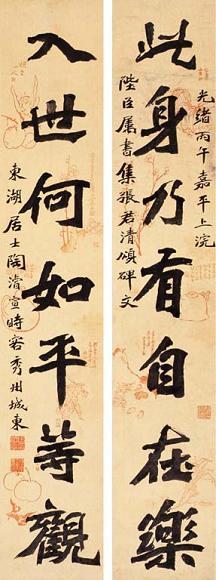 此身乃有自在樂
光緒丙午嘉平上浣
陛臣屬書集張君清頌碑文
入世何如平等觀
東湖居士陶濬宣時客秀州城東